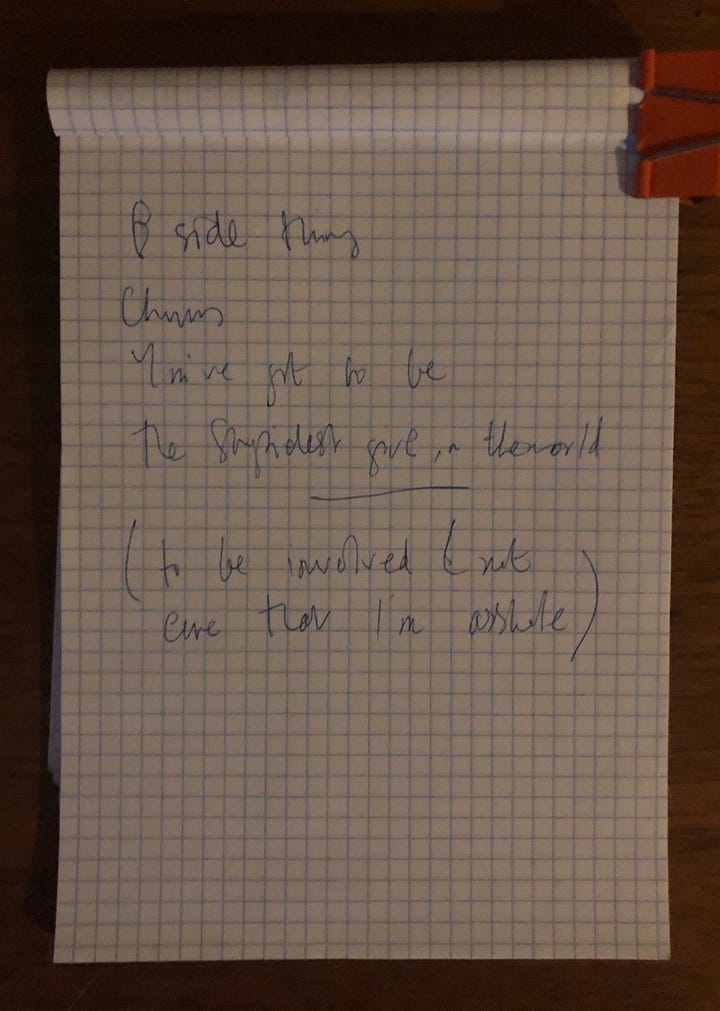 B side thing
Chorus
You've got to be
the stupidest girl in the world
(to be involved & not
care that I'm asshole)